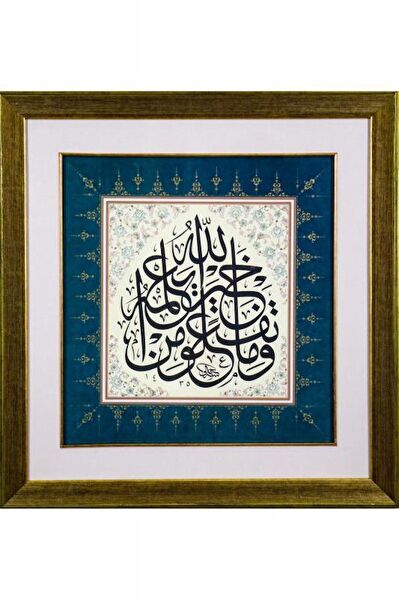 وما تفعلوا من خير يعلمه الله